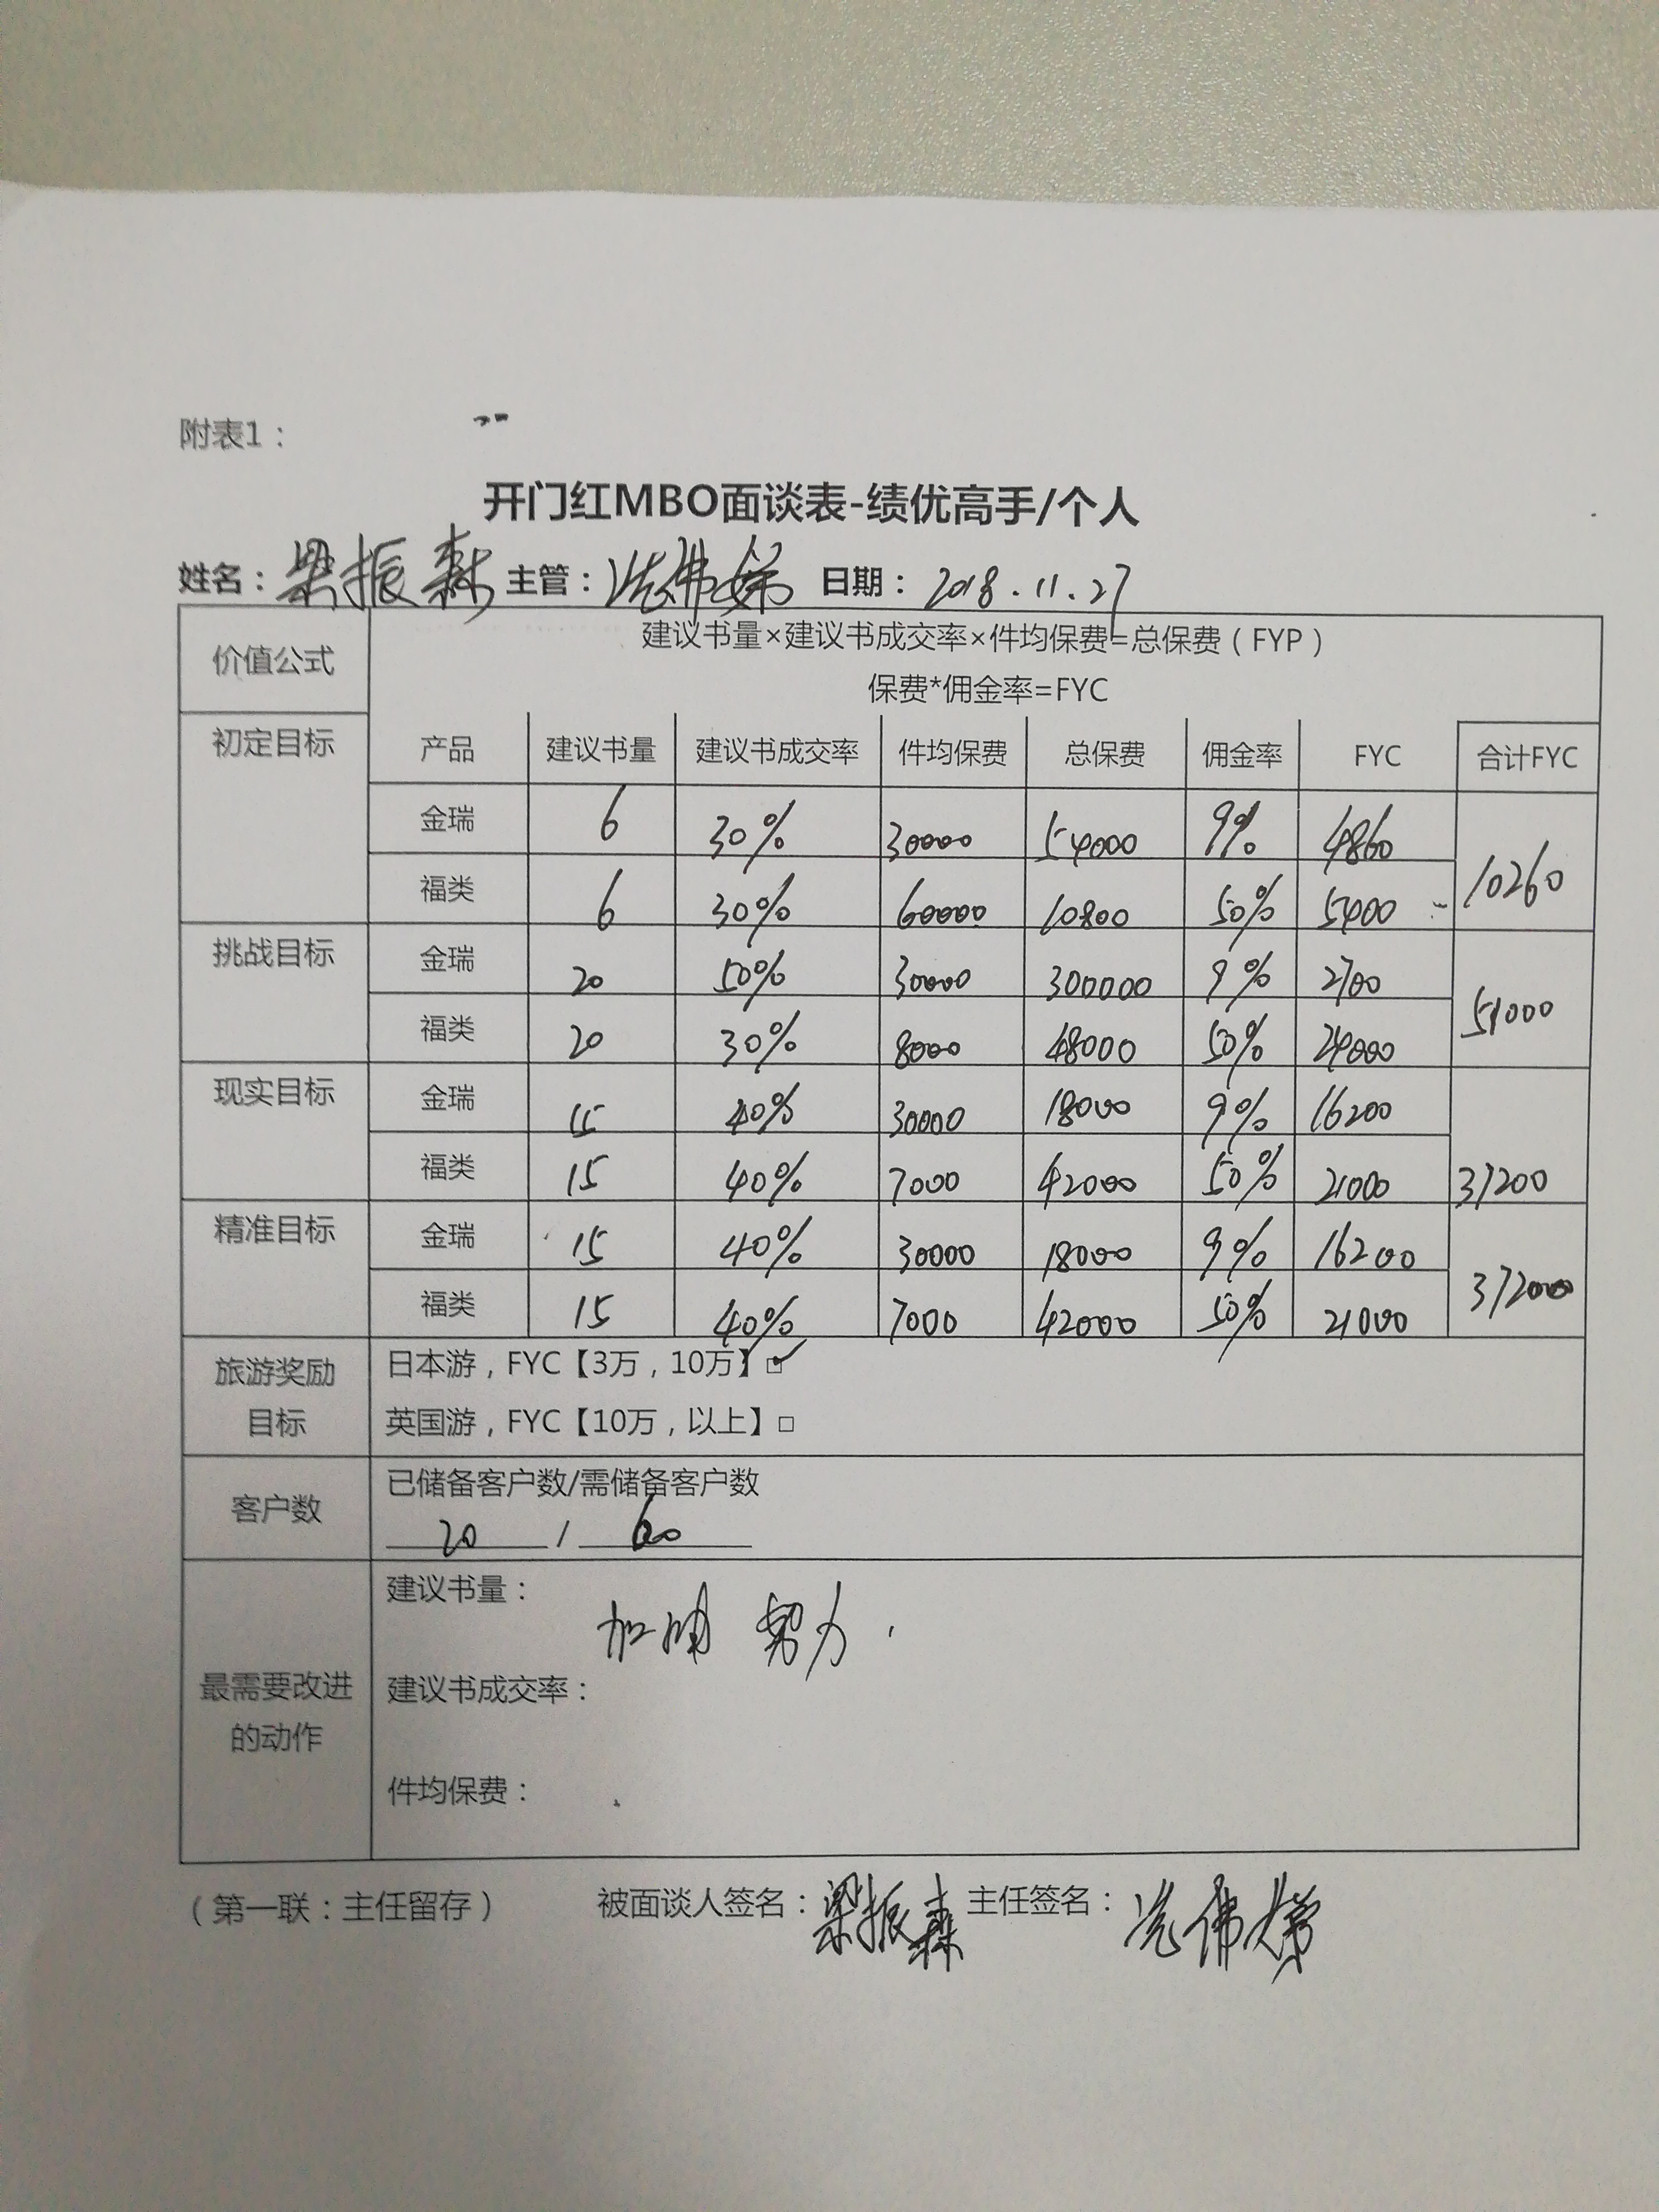 附表1：
开门红MBO面谈表-绩优高手/个人
姓名：梁振森 主管： 日期：2018.11.27
价值公式 建议书量×建议书成交率×件均保费=总保费（FYP）
保费*佣金率=FYC
初定目标 产品 建议书量 建议书成交率 件均保费 总保费 佣金率 FYC 合计FYC
金瑞 6 30% 30000 54000 9% 4860 10260
福类 6 30% 60000 10800 50% 5400
挑战目标 金瑞 20 50% 30000 300000 9% 2700 51000
福类 20 30% 8000 48000 50% 24000
现实目标 金瑞 15 40% 30000 18000 9% 16200
福类 15 40% 7000 42000 50% 21000 37200
精准目标 金瑞 15 40% 30000 18000 9% 16200 372000
福类 15 40% 7000 42000 50% 21000
旅游奖励目标 日本游，FYC【3万，10万】☑
英国游，FYC【10万，以上】□
客户数 已储备客户数/需储备客户数
20 / 60
最需要改进的动作 建议书量：
加油 努力.
建议书成交率：
件均保费：
（第一联：主任留存） 被面谈人签名：梁振森 主任签名：